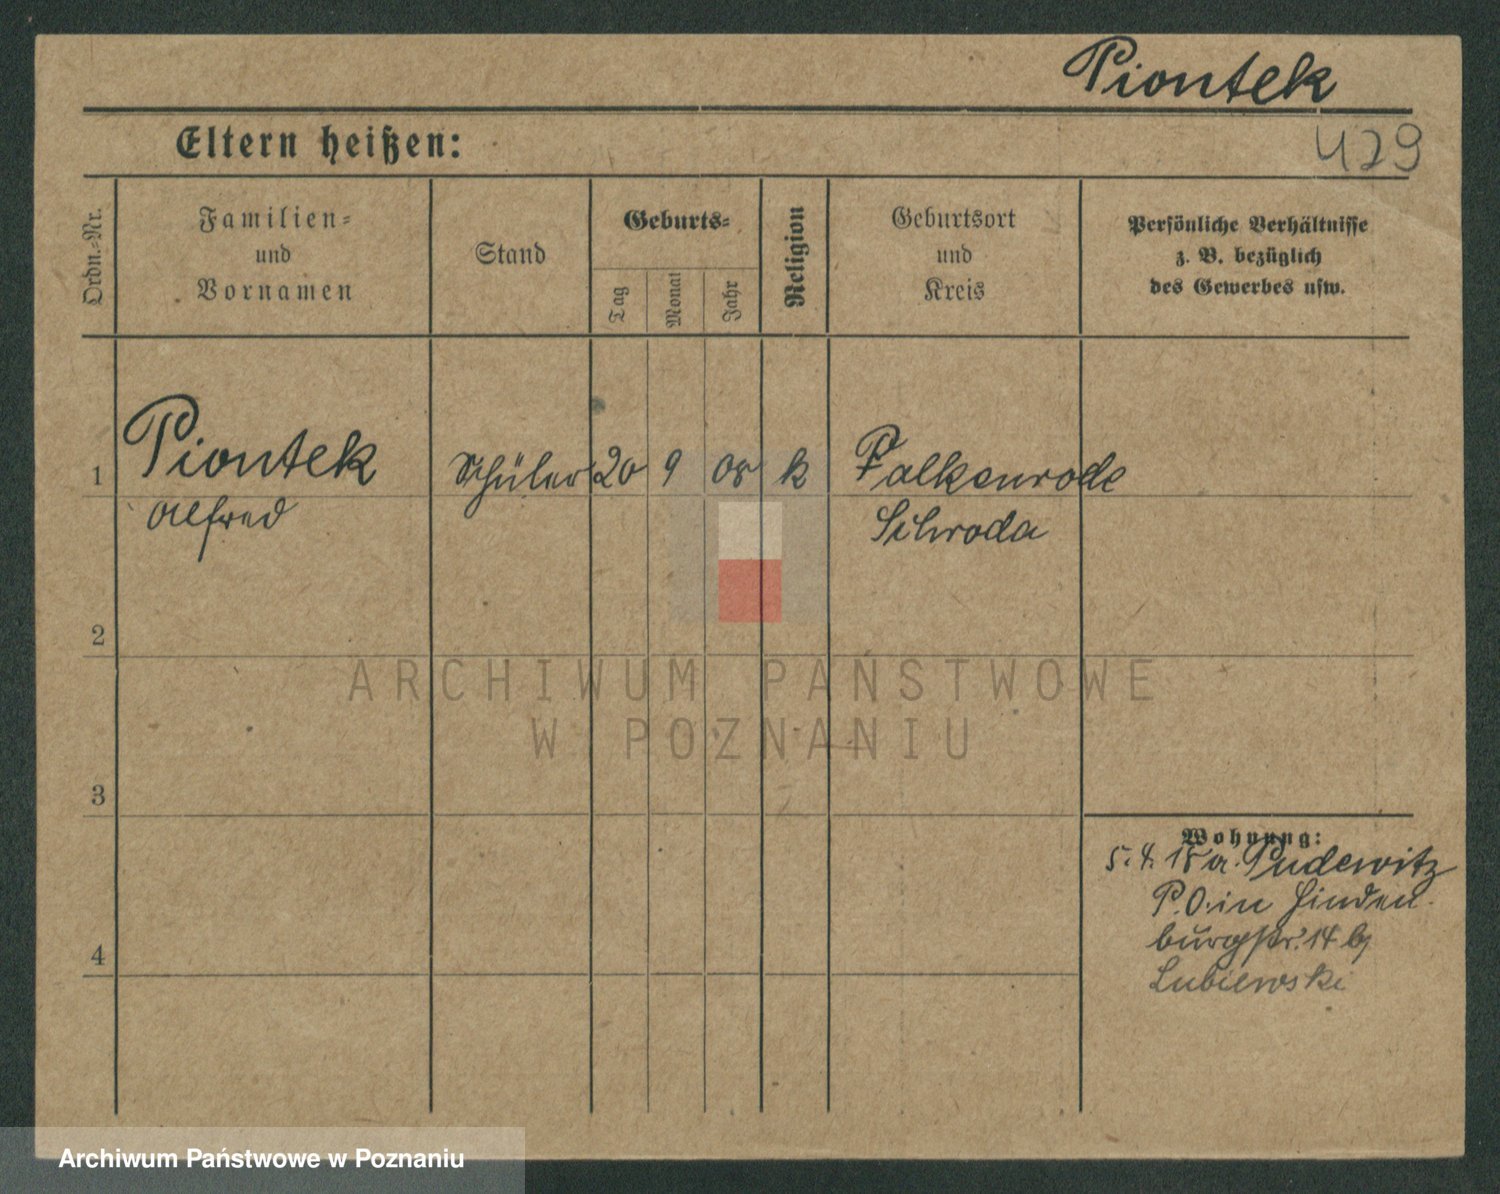 Piontek
429
Eltern heißen:
Ordn.-Nr.
Familien-
und
Vornamen
Stand
Geburts-
Tag
Monat
Jahr
Religion
Geburtsort
und
Kreis
Persönliche Verhältnisse
z. B. bezüglich
des Gewerbes usw.
1
Piontek
Alfred
Schüler
20
9
08
k
Falkenrode
Schroda
2
ARCHIWUM PAŃSTWOWE
W POZNANIU
3
Wohnung:
5. 4. 18 a. Pudewitz
P. O. in Hinden-
burgstr. 14 b/
Lubiewski
4
Archiwum Państwowe w Poznaniu